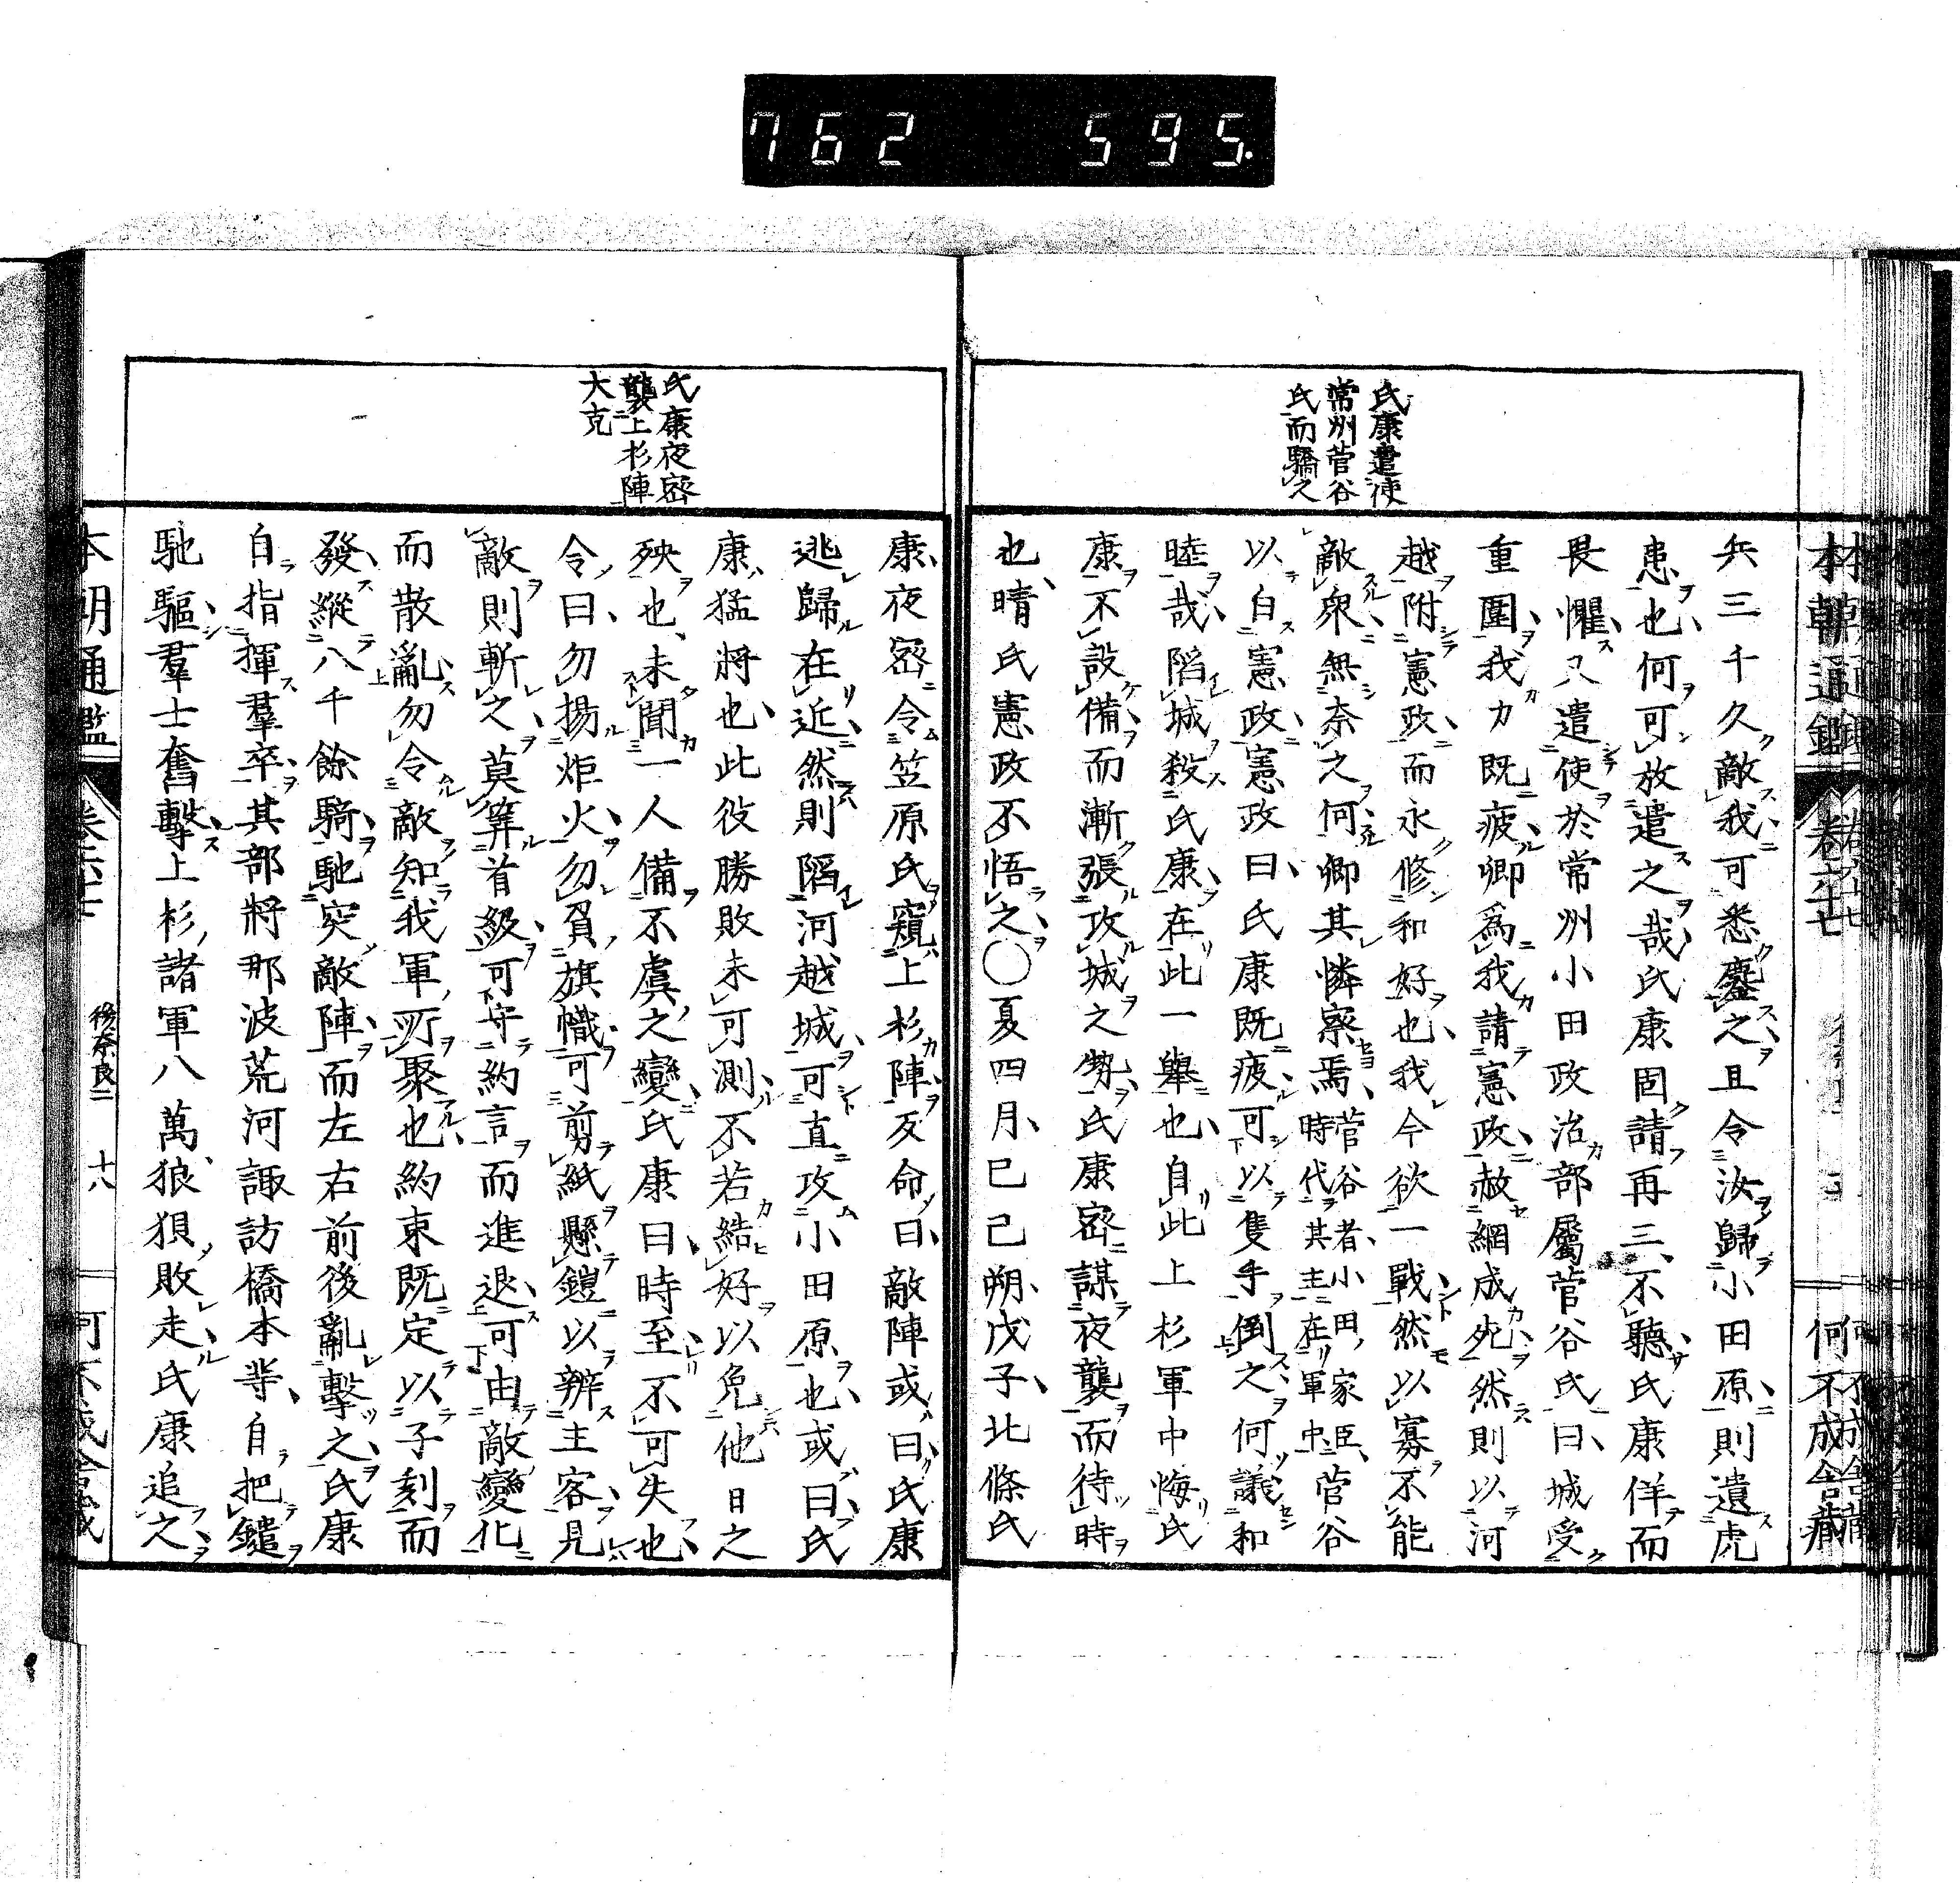 762 595.
氏康遣使
常州菅谷
氏而驕之
兵三千久敵我可悉鏖之且令汝歸小田原則遺虎
患也何可放遣之哉氏康固請再三不聽氏康佯而
畏懼又遣使於常州小田政治部屬菅谷氏曰城受
重圍我力既疲卿爲我請憲政赦網成死然則以河
越附憲政而永修和好也我今欲一戰然以寡不能
敵衆無奈之何卿其憐察焉菅谷者小田家臣菅谷
時代其主在軍中
以白憲政憲政曰氏康既疲可以隻手倒之何議和
睦哉陷城殺氏康在此一擧也自此上杉軍中悔氏
康不設備而漸張攻城之勢氏康密謀夜襲而待時
也晴氏憲政不悟之〇夏四月己巳朔戊子北條氏
氏康夜密
襲上杉陣
大克
康夜密令笠原氏窺上杉陣反命曰敵陣或曰氏康
逃歸在近然則陷河越城可直攻小田原也或曰氏
康猛將也此役勝敗未可測不若結好以免他日之
殃也未聞一人備不虞之變氏康曰時至不可失也
令曰勿揚炬火勿負旗幟可剪紙懸鎧以辨主客見
敵則斬之莫筭首級可守約言而進退可由敵變化
而散亂勿令敵知我軍所聚也約束既定以子刻而
發縱八千餘騎馳突敵陣而左右前後亂擊之氏康
自指揮羣卒其部將那波荒河諏訪橋本輩自把鑓
馳驅羣士奮擊上杉諸軍八萬狼狽敗走氏康追之
本朝通鑑 後奈良二 十八